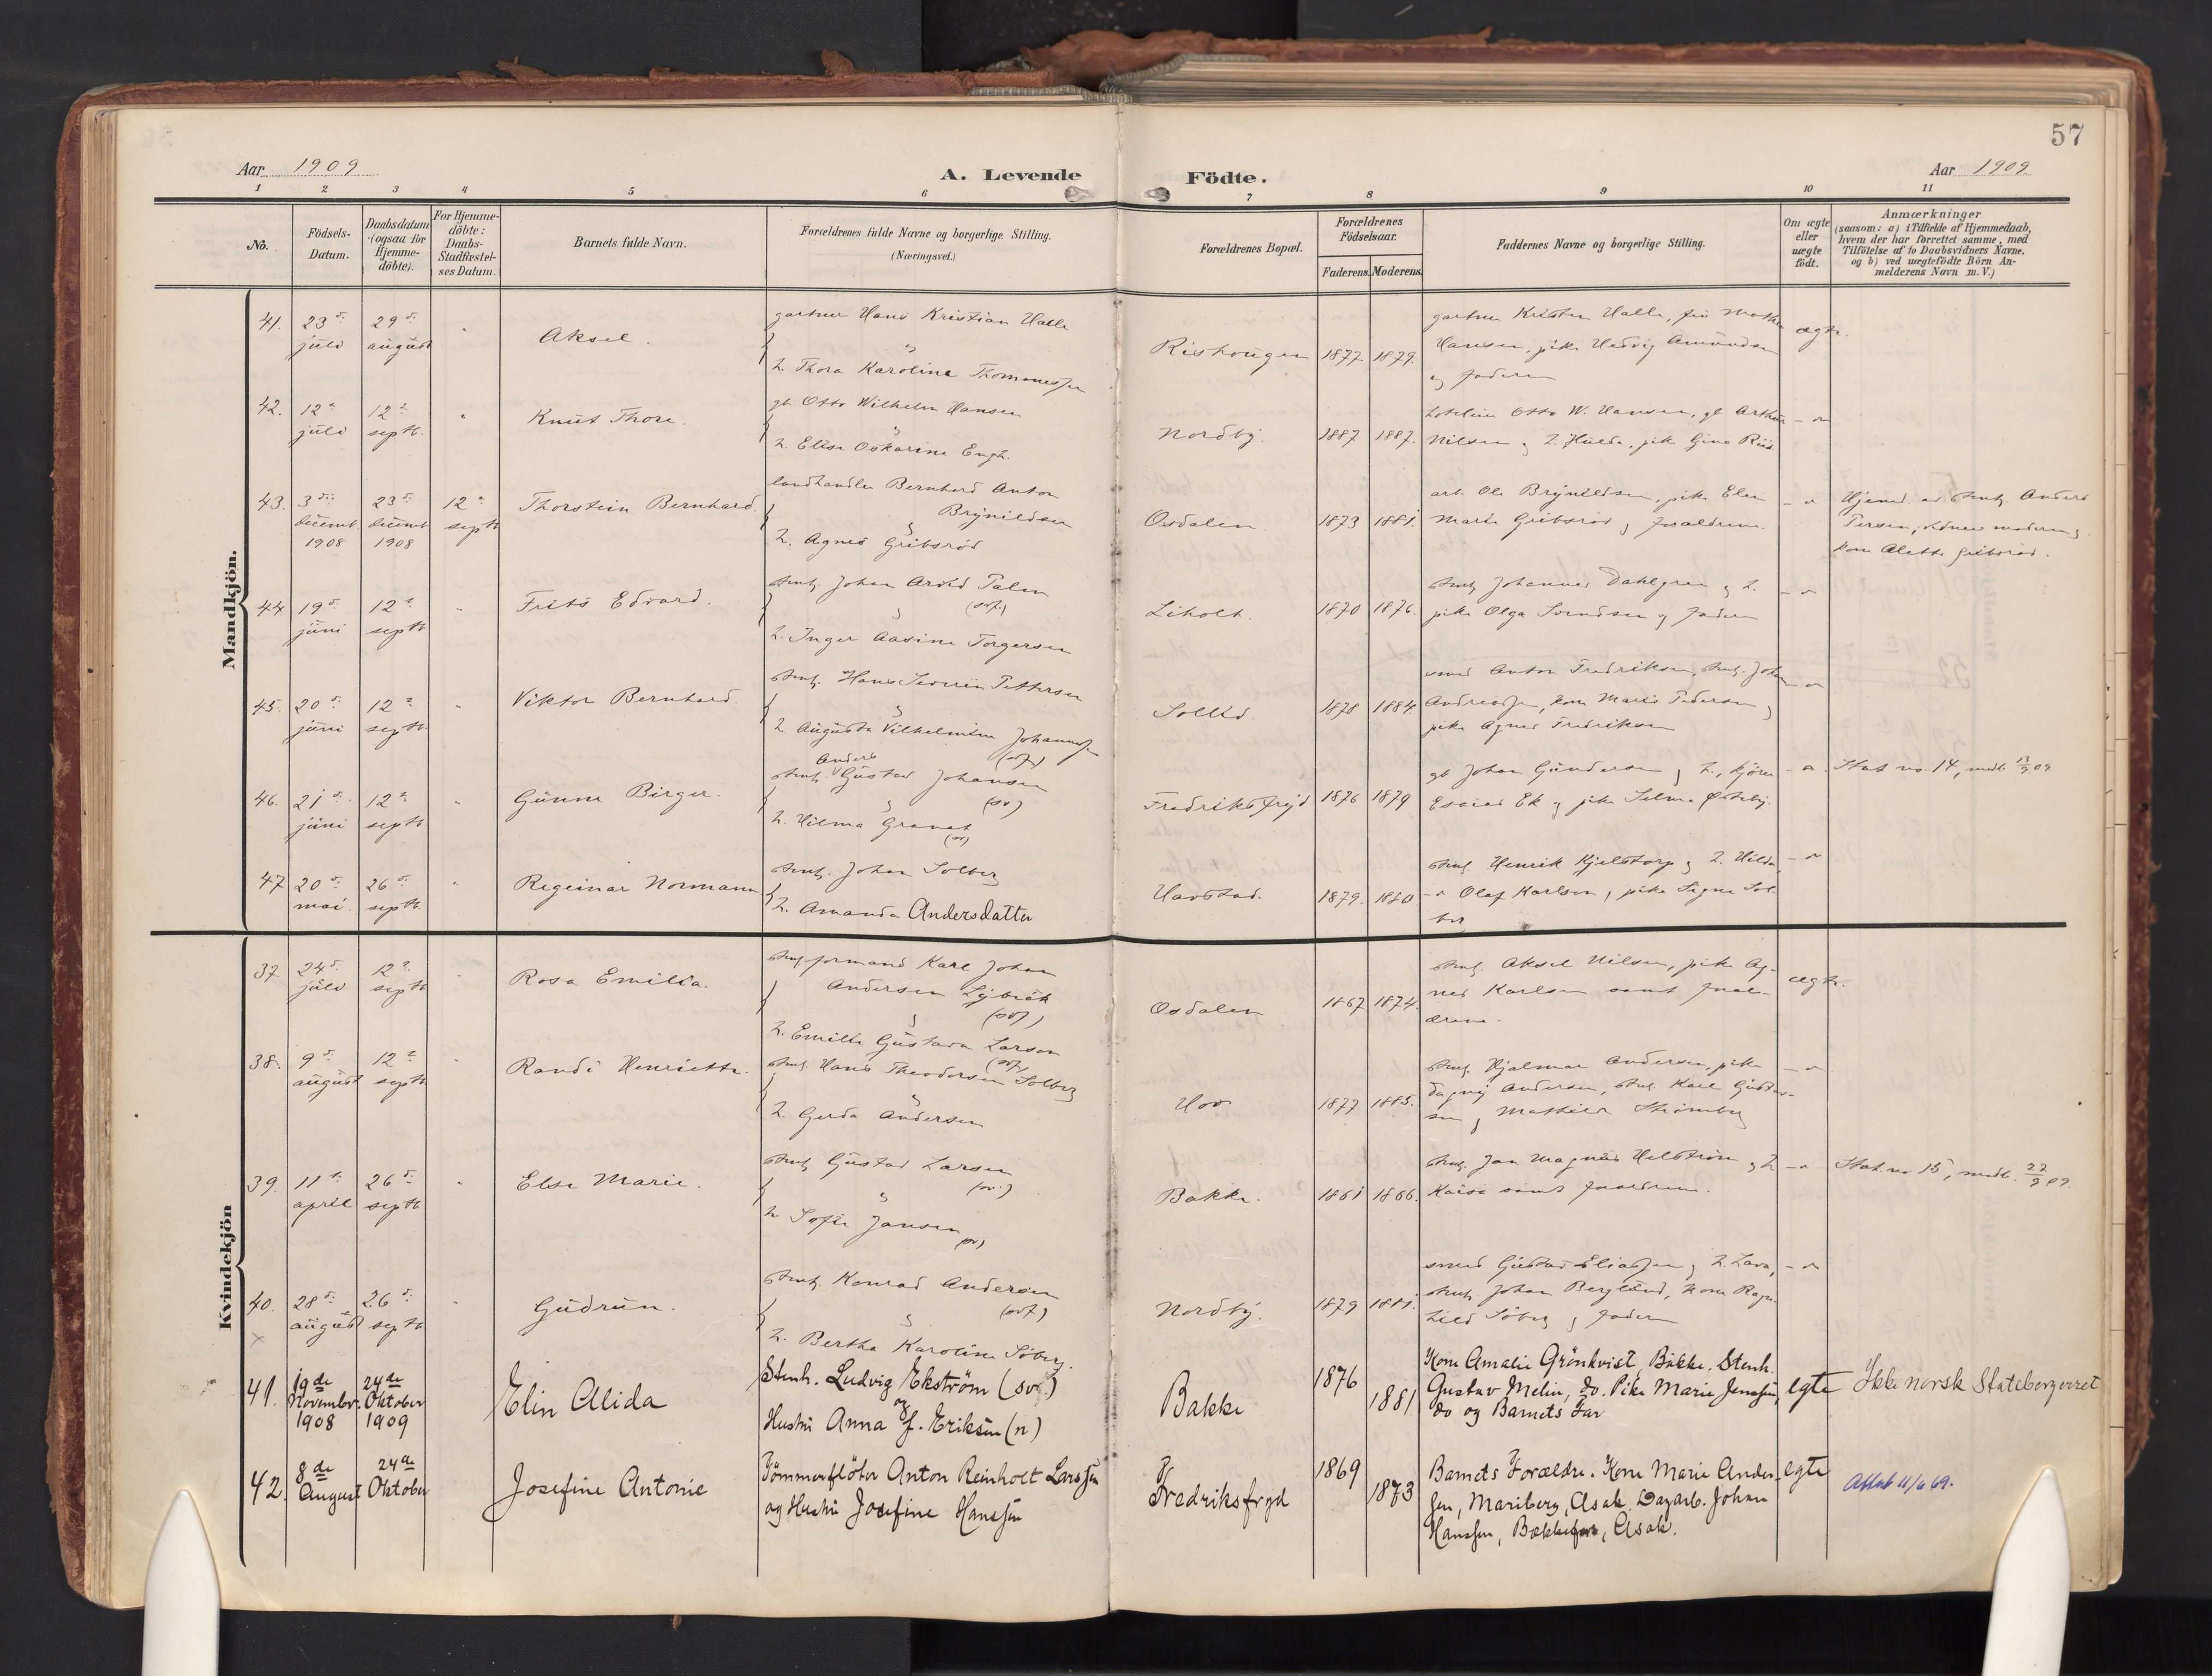 57
Aar 1909.
A. Levende Födte.
Aar 1909.
1 2 3 4 5 6 7 8 9 10 11
No.
Födsels-Datum.
Daabsdatum (ogsaa for Hjemme-döbte).
For Hjemme-döbte: Daabs-Stadfæstel-ses Datum.
Barnets fulde Navn.
Forældrenes fulde Navne og borgerlige Stilling.
(Næringsvei.)
Forældrenes Bopæl.
Forældrenes Födselsaar.
Faderens. Moderens.
Faddernes Navne og borgerlige Stilling.
Om ægte eller uægte födt.
Anmærkninger
(saasom: a) i Tilfælde af Hjemmedaab, hvem der har forrettet samme, med Tilföielse af to Daabsvidners Navne, og b) ved uægtefödte Börn An-melderens Navn m. V.)
Mandkjön.
41. 23de juli
29de august
Aksel.
gartner Hans Kristian Halle
og
h. Thora Karoline Thommessen
Rishaugen
1877. 1879.
Hansen, pike Hedvig Amundsen
og faderen
ægte.
42. 12te juli
12te septb.
Knut Thore.
gb. Otto Wilhelm Hansen
og
h. Elise Oskarine Engh.
Nordby.
1887 1887.
Otto W. Hansen, gb Arthur
Nilsen og h. Hulda, pike Gina Riis
43. 3die decemb. 1908
23de decemb. 1908
12te septb
Thorstein Bernhard
landhandler Bernhard Anton
Brynildsen
og
h. Agnes Gribsröd
Osdalen
1873 1881.
arb. Ole Brynildsen, pike Elen
Marie Gribsröd og forældrene.
Hjemd. av stenh. Anders
kone Alette Gribsröd.
44 19de juni
12te septb
Frits Edvard.
stenh. Johan Arvid Palm
(svf.)
og
h. Inger Aasine Torgersen
Liholt.
1870 1876.
stenh Johannes Dahlgren og h.
pike Olga Svendsen og faderen
45. 20de juni
12te septb
Viktor Bernhard.
stenh. Hans Severin Pettersen
og
h. Augusta Vilhelmine Johannessen
Sollid.
1878 1884.
smed Anton Fredriksen, stenh. Johan
Andreassen, kone Marie Pedersen og
pike Agnes Fredriksen
46. 21de juni
12te septb
Gunnar Birger.
Anders
stenh. Gustav Johansen
(sv)
og
h. Hilma Granat
(sv)
Fredriksfryd
1876 1879
gb Johan Gundersen og h., kjörer
Esaias Ek og pike Selma Österby.
Stat. no. 14, medt. 13/9 09
47 20de mai.
26de septb.
Regeinar Normann
stenh. Johan Solberg
h. Amanda Andersdatter
Havstad.
1879. 1880
stenh Henrik Kjelstorp og h. Hilda,
Olaf Karlsen, pike Signe Sol
berg
Kvindekjön
37. 24de juli
12te septb
Rosa Emilia.
stenh.formand Karl Johan
Andersen Lybæck
(svf)
og
h. Emilie Gustava Larson
(svf)
Osdalen
1867 1874.
stenh. Aksel Nilsen, pike Ag-
nes Karlsen samt foræl-
drene.
ægte.
38. 9de august
12te septb
Randi Henriette.
stenh. Hans Theodorsen Solberg
og
h. Gerda Andersen
Hov
1877 1885.
stenh. Hjalmar Andersen, pike
Dagny Andersen, stenh. Karl Gustav-
sen og Mathilde Strömberg
39. 11te april
26de septb
Else Marie.
stenh Gustav Larsen
(sv.)
og
h Sofie Jansen
(sv)
Bakke.
1861 1866.
stenh. Jan Magnus Helström og h
Kaisa samt forældrene.
Stat. no 15, medt. 27/9 09.
40. 28de august
26de septb
Gudrun.
stenh. Konrad Andersen
(svf)
og
h. Bertha Karoline Söberg.
Nordby.
1879 1881.
smed Gustav Eliassen og h. Lava,
stenh. Johan Berglund, kone Ragn-
hild Söberg og faderen
41. 19de November 1908
24de Oktober 1909
Elin Alida
Stenh. Ludvig Ekström (svf)
og
Hustru Anna f. Eriksen (n)
Bakke
1876 1881
Kone Amalie Grönkvist, Bakke. Stenh.
Gustav Melin, do. Pike Marie Jenssen,
do og Barnets Far
egte
Ikke norsk Statsborgerret
42. 8de August
24de Oktober
Josefine Antonie
Tömmerflöter Anton Reinholt Larssen
og Hustru Josefine Hanssen
Fredriksfryd
1869 1873
Barnets Forældre. Kone Marie Ander-
sen, Mariberg, Asak. Dagarb. Johan
Hanssen, Bækkefos, Asak.
egte
Attest 11/6 69.